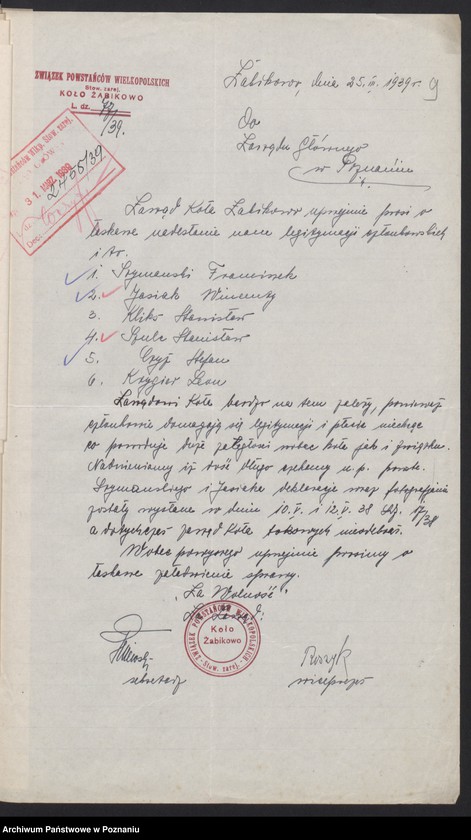 ZWIĄZEK POWSTAŃCÓW WIELKOPOLSKICH
Stow. zarej.
KOŁO ŻABIKOWO
L. dz. 47/39.
Żabikowo, dnia 25. III. 1939 r. 9
Do
Zarządu Głównego
w Poznaniu
31. MARZ. 1939
2455/39
Zarząd Koła Żabikowo uprzejmie prosi o
łaskawe nadesłanie nam legitymacji członkowskich
i to.
1. Szymański Franciszek
2. Jasiak Wincenty
3. Kliks Stanisław
4. Szulc Stanisław
5. Czyż Stefan
6. Krygier Leon
Zarządowi Koła bardzo na tem zależy, ponieważ
członkowie domagają się legitymacji i płacić niechcą
co powoduje duże zaległości wobec koła jak i związku.
Nadmieniamy iż dość długo czekamy n.p.
Szymańskiego i Jasiaka deklaracje wraz fotografjami
zostały wysłane w dniu 10. V. i 12. V. 38 17/38
a dotychczas zarząd Koła takowych nieodebrał.
Wobec powyższego uprzejmie prosimy o
łaskawe załatwienie sprawy.
"Za Wolność"
Zarząd:
ZWIĄZEK POWSTAŃCÓW WIELKOPOLSKICH
Koło
Żabikowo
Stow. zarej.
sekretarz
wiceprezes
Archiwum Państwowe w Poznaniu